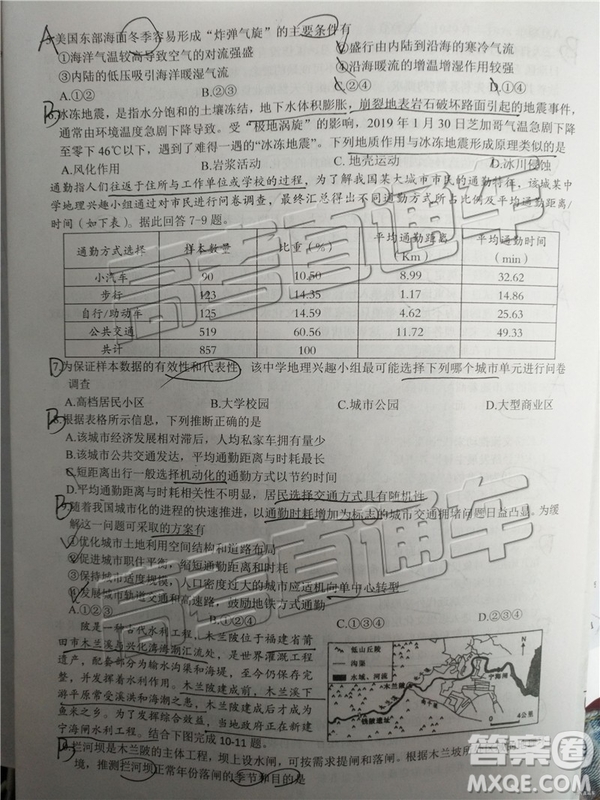 A
5.美国东部海面冬季容易形成“炸弹气旋”的主要条件有
①海洋气温较高导致空气的对流强盛 ②盛行由内陆到沿海的寒冷气流
③内陆的低压吸引海洋暖湿气流 ④沿海暖流的增温增湿作用较强
A.①② B.②③ C.②④ D.①④
B
冰冻地震,是指水分饱和的土壤冻结,地下水体积膨胀,崩裂地表岩石破坏路面引起的地震事件,
通常由环境温度急剧下降导致。受“极地涡旋”的影响,2019年1月30日芝加哥气温急剧下降
至零下46℃以下,遇到了难得一遇的“冰冻地震”。下列地质作用与冰冻地震形成原理类似的是
A.风化作用 B.岩浆活动 C.地壳运动 D.冰川侵蚀
通勤指人们往返于住所与工作单位或学校的过程,为了解我国某大城市市民的通勤特征,该城某中
学地理兴趣小组通过对市民进行问卷调查,最终汇总得出不同通勤方式所占比例及平均通勤距离/
时间(如下表)。据此回答7-9题。
通勤方式选择 样本数量 比重(%) 平均通勤距离(Km) 平均通勤时间(min)
小汽车 90 10.50 8.99 32.62
步行 123 14.35 1.17 14.86
自行/助动车 125 14.59 4.62 25.63
公共交通 519 60.56 11.72 49.33
共计 857 100
D
7.为保证样本数据的有效性和代表性,该中学地理兴趣小组最可能选择下列哪个城市单元进行问卷
调查
A.高档居民小区 B.大学校园 C.城市公园 D.大型商业区
B
8.根据表格所示信息,下列推断正确的是
A.该城市经济发展相对滞后,人均私家车拥有量少
B.该城市公共交通发达,平均通勤距离与时耗最长
C.短距离出行一般选择机动化的通勤方式以节约时间
D.平均通勤距离与时耗相关性不明显,居民选择交通方式具有随机性
B
9.随着我国城市化的进程的快速推进,以通勤时耗增加为标志的城市交通拥堵问题日益凸显,为缓
解这一问题可采取的方案有
①优化城市土地利用空间结构和道路布局
②促进城市职住平衡,缩短通勤距离和时耗
③保持城市适度规模,人口密度过大的城市应适机向单中心转型
④发展城市轨道交通和高速路,鼓励地铁方式通勤
A.①②③ B.①②④ C.①③④ D.②③④
陂是一种古代水利工程,木兰陂位于福建省莆
田市木兰溪与兴化湾海潮汇流处,是世界灌溉工程
遗产,配套部分为输水沟渠和海堤,至今仍保存完
整,并发挥着水利作用。木兰陂建成前,木兰溪下
游平原常受溪洪和海潮之患,木兰陂建成后才成为
鱼米之乡。为了发挥综合效益,当地政府正在新建
宁海闸水利工程。结合下图完成10-11题。
低山丘陵
沟渠
水域、河流
木兰陂
宁海闸
钱陂遗址
0 4公里
D
拦河坝是木兰陂的主体工程,坝上设水闸,可按需求提闸和落闸。根据木兰陂所
境,推测拦河坝正常年份落闸的季节和目的是
高考直通车
高考直通车
答案圈
MXQE.COM